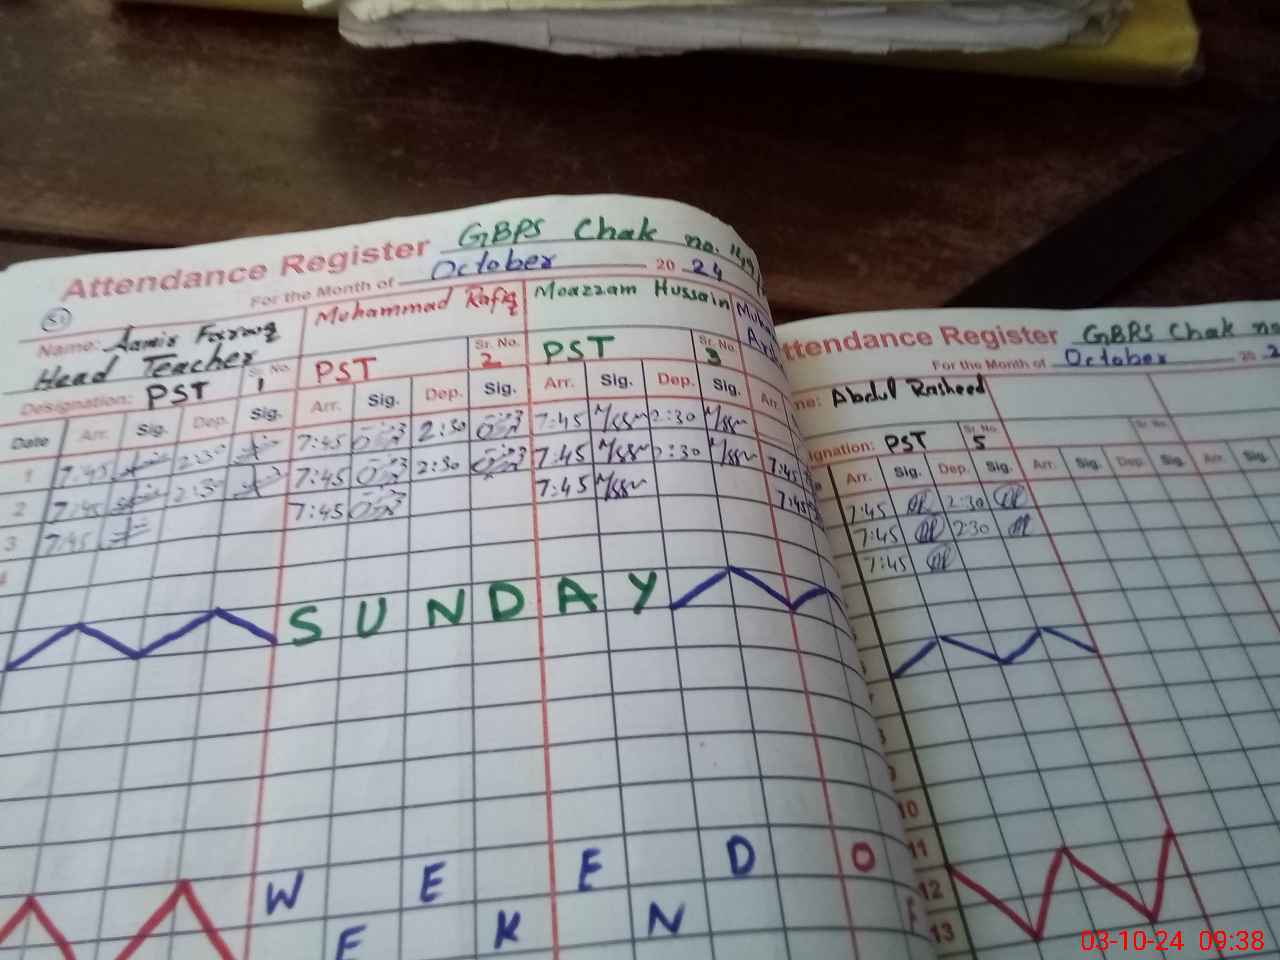 Attendance Register GBPS Chak no.
For the Month of October 20 24
51
Name: Aamir Farooq Muhammad Rafiq Moazzam Hussain
Head Teacher
Designation: PST Sr. No. 1 PST Sr. No. 2 PST Sr. No. 3
Date Arr. Sig. Dep. Sig. Arr. Sig. Dep. Sig. Arr. Sig. Dep. Sig. Arr.
1 7:45 2:30 7:45 2:30 7:45 2:30
2 7:45 2:30 7:45 2:30 7:45 2:30 7:45
3 7:45 7:45 7:45 7:45
4
SUNDAY
W E E D O
E K N
ttendance Register GBPS Chak no
For the Month of October 20 2
me: Abdul Rasheed
ignation: PST Sr. No. 5 Sr. No.
Arr. Sig. Dep. Sig. Arr. Sig. Dep. Sig. Arr. Sig.
7:45 2:30
7:45 2:30
7:45
10
11
12
13
03-10-24 09:38